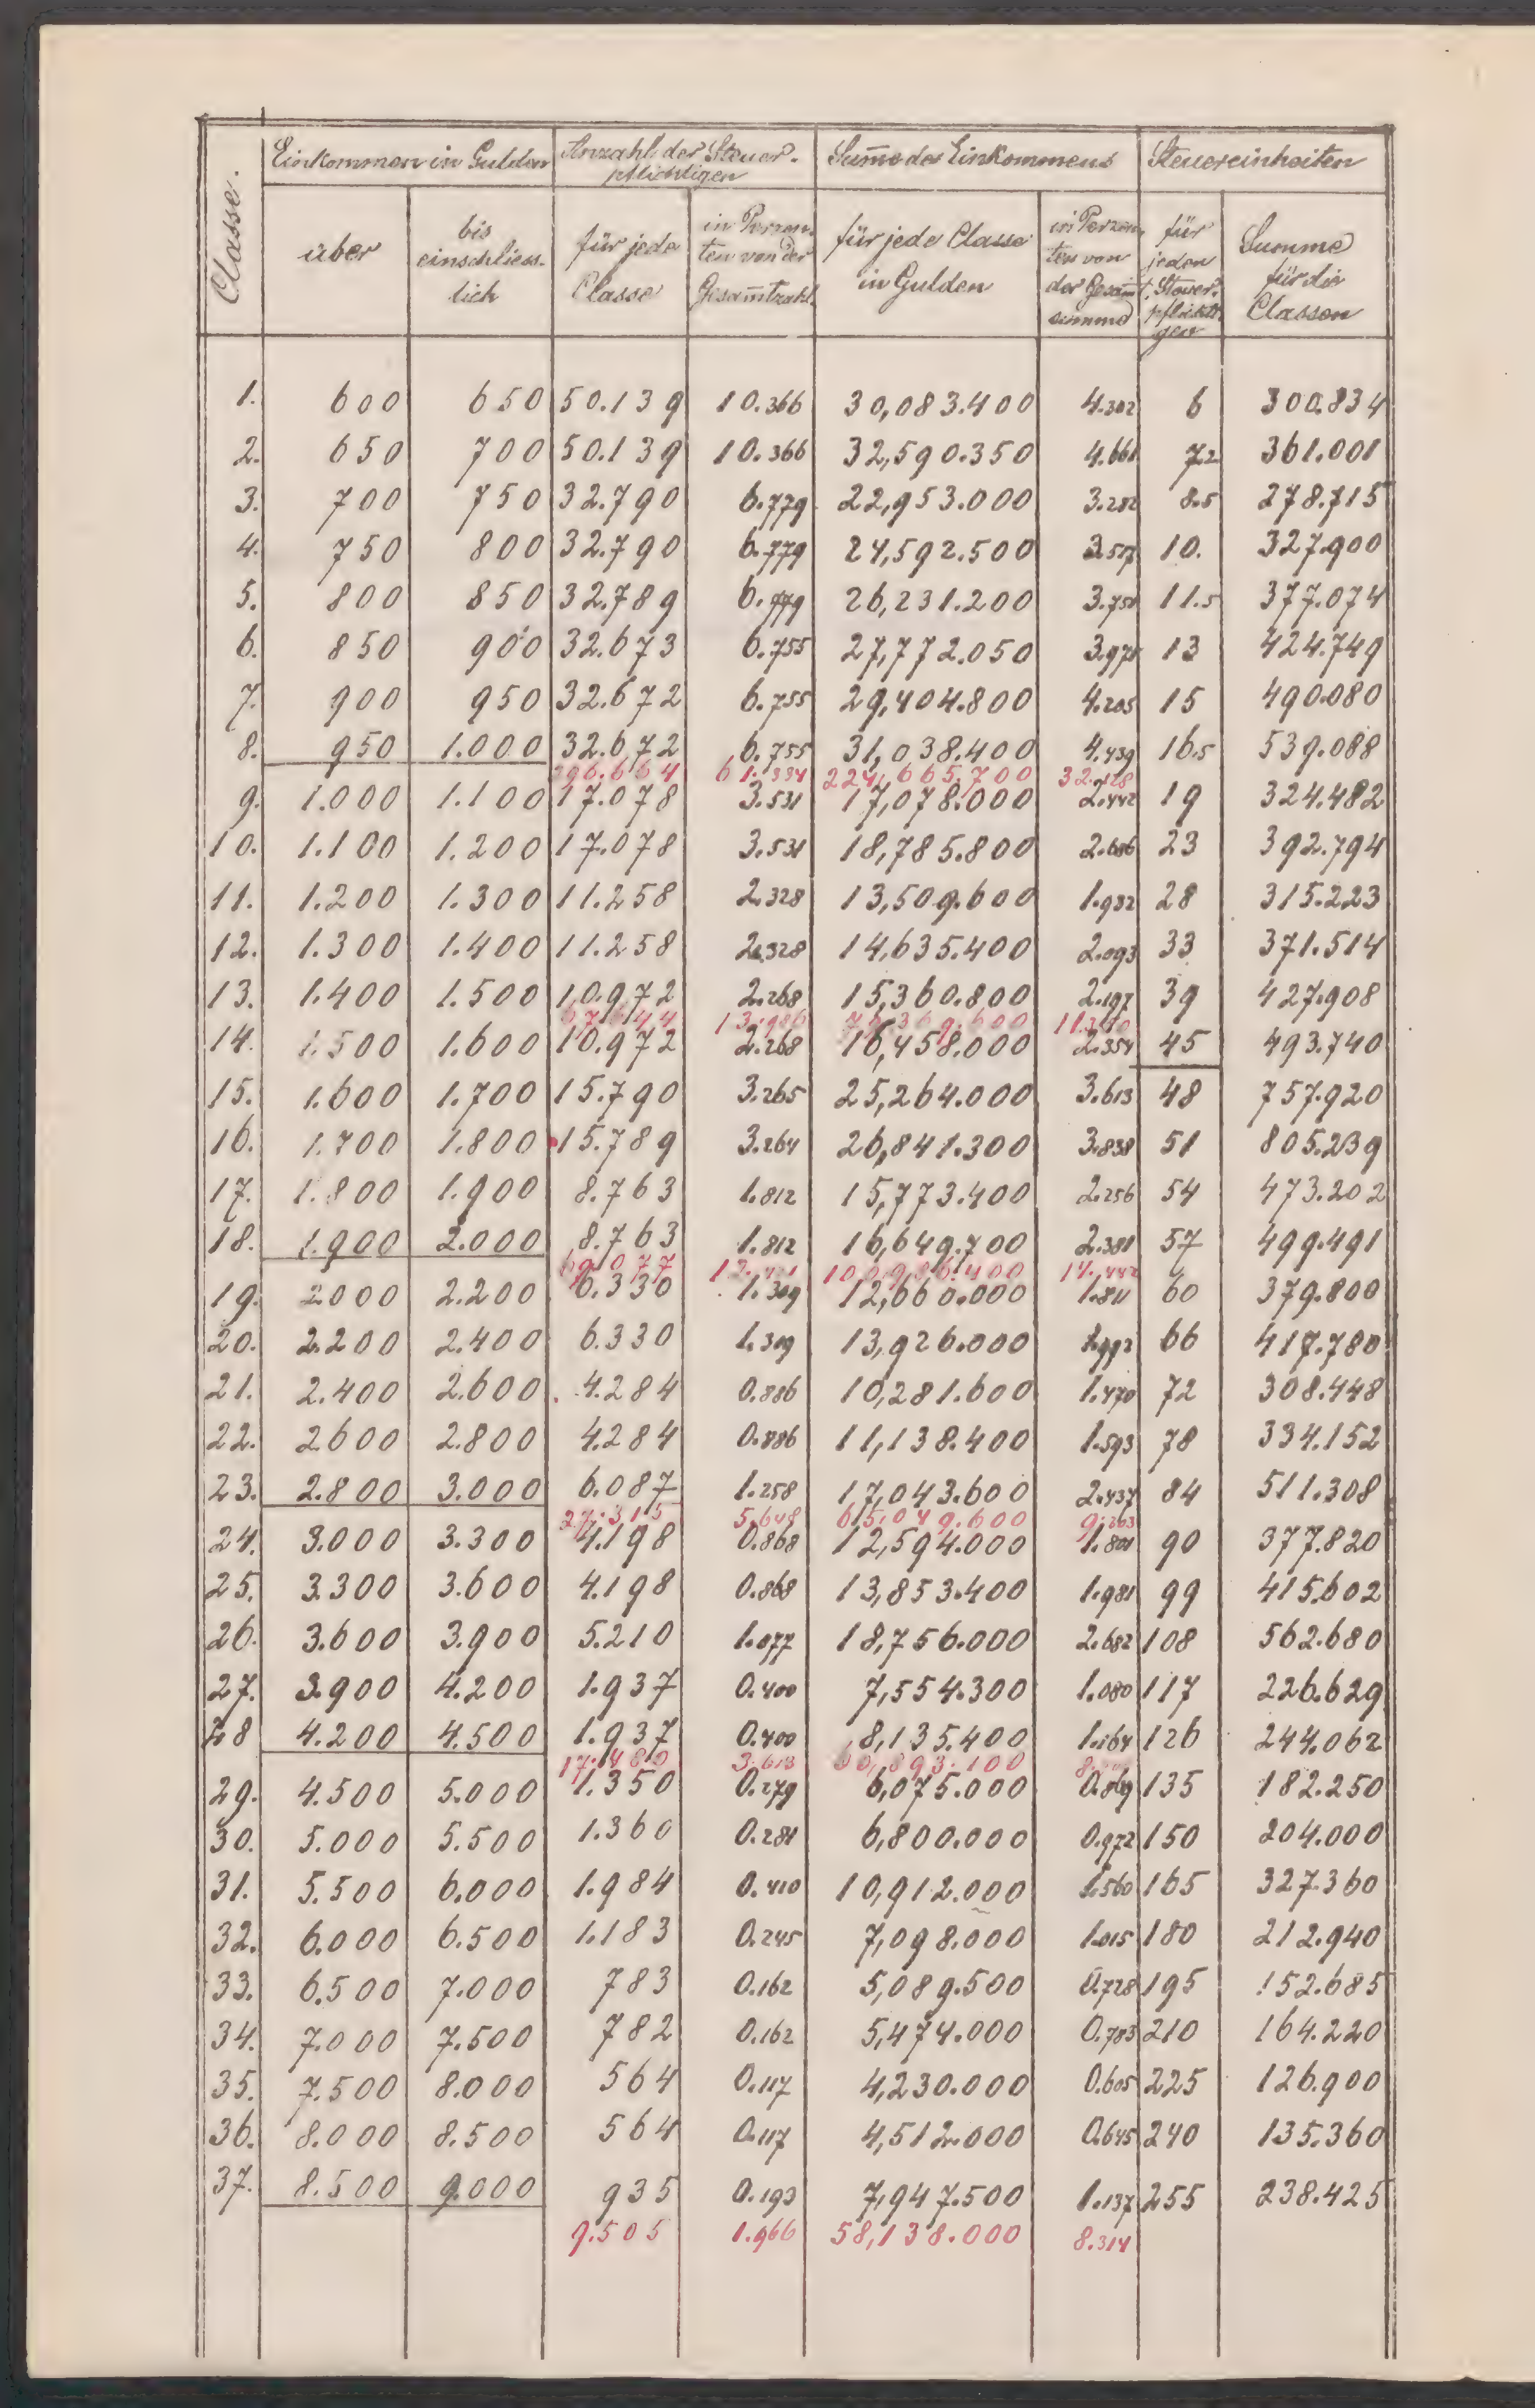 Classe.
Einkommen in Gulden Anzahl der Steuer- Summe des Einkommens Steuereinheiten
pflichtigen
über bis für jede in Perzen- für jede Classe in Perzen- für Summe
einschliess- Classe ten von der in Gulden ten von jeden für die
lich Gesam̅tzahl der Gesam̅t- Steuer- Classen
summe pflichti-
gen
1. 600 650 50.139 10.366 30,083.400 4.302 6 300.834
2. 650 700 50.139 10.366 32,590.350 4.661 7.2 361.001
3. 700 750 32.790 6.779 22,953.000 3.282 8.5 278.715
4. 750 800 32.790 6.779 24,592.500 3.517 10. 327.900
5. 800 850 32.789 6.779 26,231.200 3.751 11.5 377.074
6. 850 900 32.673 6.755 27,772.050 3.971 13 424.749
7. 900 950 32.672 6.755 29,404.800 4.205 15 490.080
8. 950 1.000 32.672 6.755 31,038.400 4.439 16.5 539.088
296.664 61.334 224,665.700 32.128
9. 1.000 1.100 17.078 3.531 17,078.000 2.442 19 324.482
10. 1.100 1.200 17.078 3.531 18,785.800 2.686 23 392.794
11. 1.200 1.300 11.258 2.328 13,509.600 1.932 28 315.223
12. 1.300 1.400 11.258 2.328 14,635.400 2.093 33 371.514
13. 1.400 1.500 10.972 2.268 15,360.800 2.197 39 427.908
67.644 13.986 79,369.600 11.350
14. 1.500 1.600 10.972 2.268 16,458.000 2.354 45 493.740
15. 1.600 1.700 15.790 3.265 25,264.000 3.613 48 757.920
16. 1.700 1.800 15.789 3.264 26,841.300 3.838 51 805.239
17. 1.800 1.900 8.763 1.812 15,773.400 2.256 54 473.202
18. 1.900 2.000 8.763 1.812 16,649.700 2.381 57 499.491
60.077 12.421 100,986.400 14.442
19. 2000 2.200 6.330 1.309 12,660.000 1.811 60 379.800
20. 2.200 2.400 6.330 1.309 13,926.000 1.992 66 417.780
21. 2.400 2.600 4.284 0.886 10,281.600 1.470 72 308.448
22. 2.600 2.800 4.284 0.886 11,138.400 1.593 78 334.152
23. 2.800 3.000 6.087 1.258 17,043.600 2.437 84 511.308
27.315 5.648 65,049.600 9.303
24. 3.000 3.300 4.198 0.868 12,594.000 1.801 90 377.820
25. 3.300 3.600 4.198 0.868 13,853.400 1.981 99 415.602
26. 3.600 3.900 5.210 1.077 18,756.000 2.682 108 562.680
27. 3.900 4.200 1.937 0.400 7,554.300 1.080 117 226.629
28 4.200 4.500 1.937 0.400 8,135.400 1.164 126 244.062
17.480 3.613 60,893.100
29. 4.500 5.000 1.350 0.279 6,075.000 0.869 135 182.250
30. 5.000 5.500 1.360 0.281 6,800.000 0.972 150 204.000
31. 5.500 6.000 1.984 0.410 10,912.000 1.560 165 327.360
32. 6.000 6.500 1.183 0.245 7,098.000 1.015 180 212.940
33. 6.500 7.000 783 0.162 5,089.500 0.728 195 152.685
34. 7.000 7.500 782 0.162 5,474.000 0.783 210 164.220
35. 7.500 8.000 564 0.117 4,230.000 0.605 225 126.900
36. 8.000 8.500 564 0.117 4,512.000 0.645 240 135.360
37. 8.500 9.000 935 0.193 7,947.500 1.137 255 238.425
9.505 1.966 58,138.000 8.314